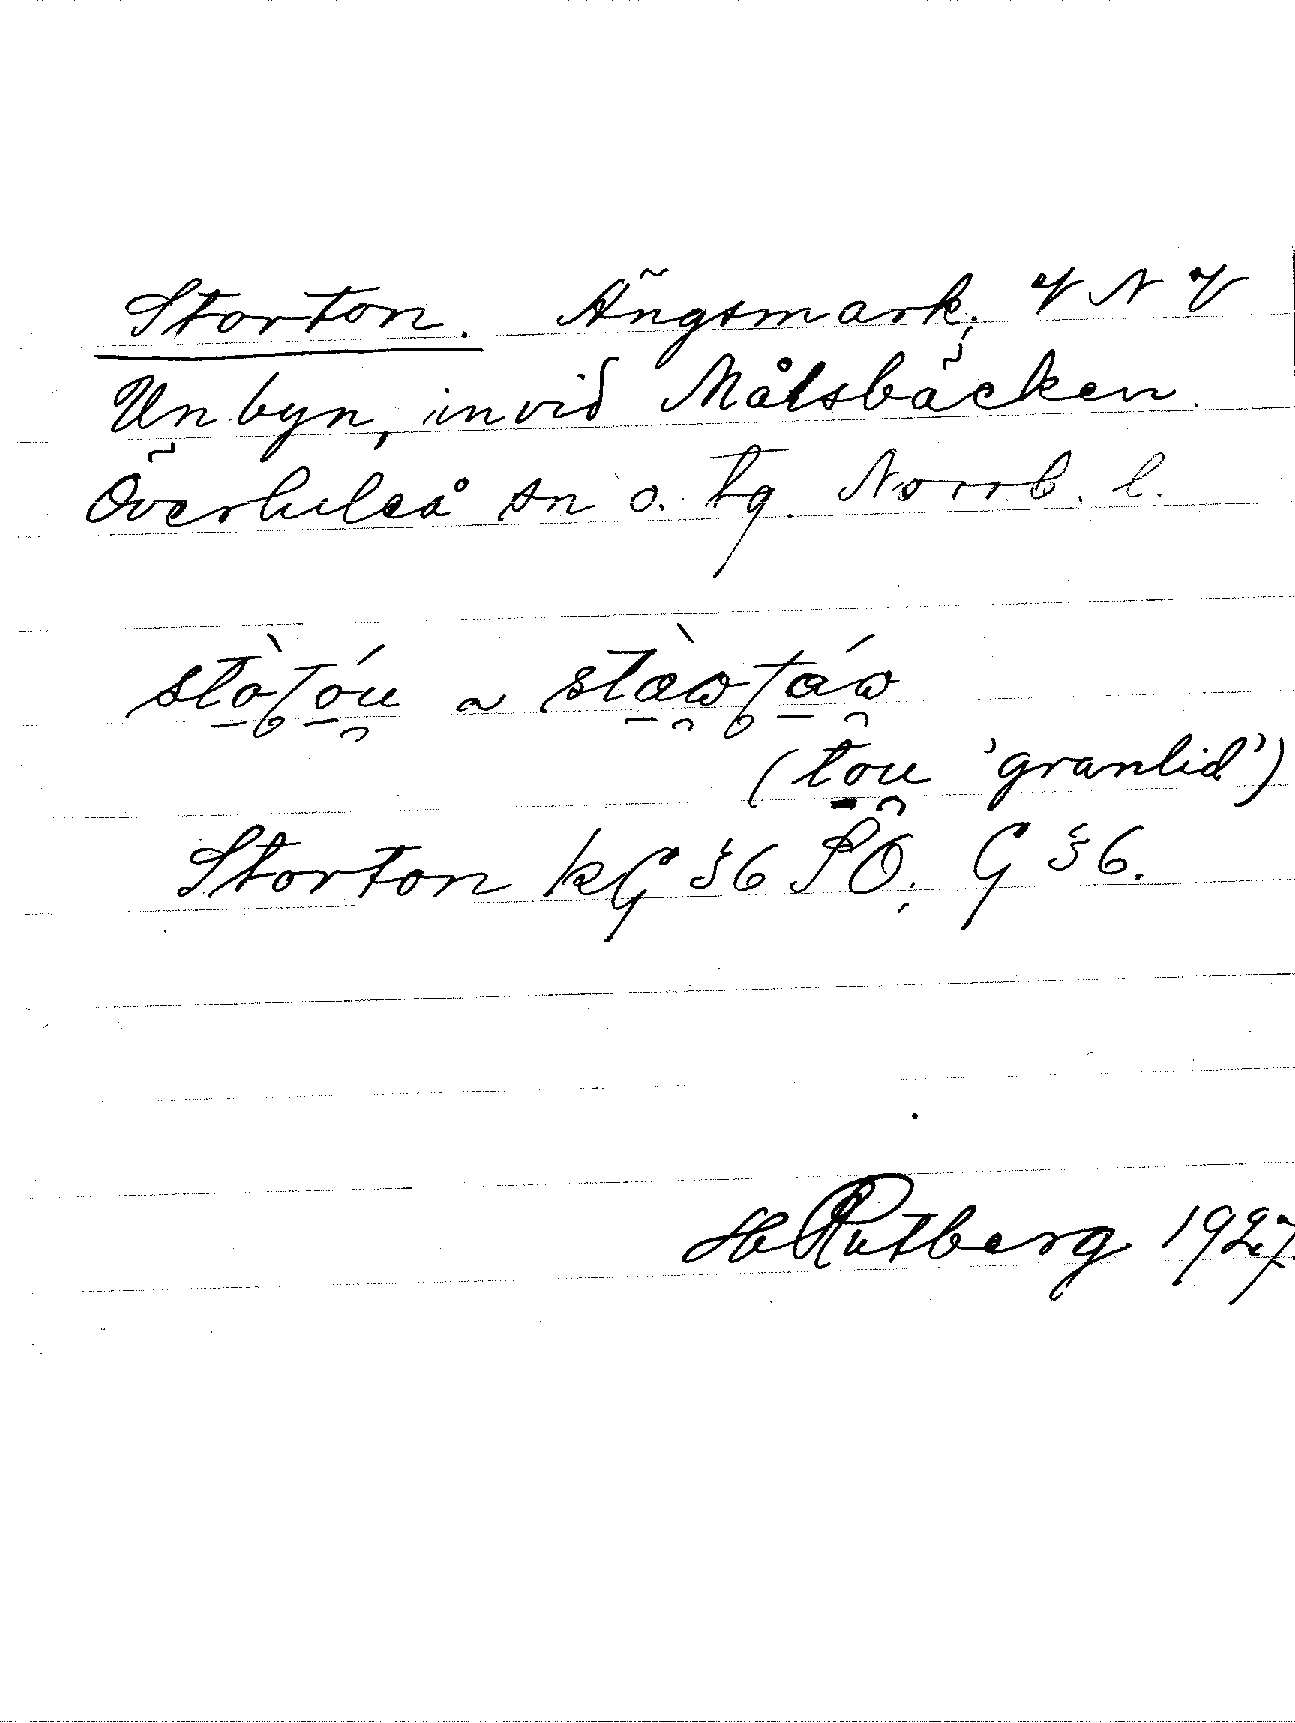 Storton. Ängsmark, VNV
Unbyn, invid Målsbäcken.
Överluleå sn o. tg. Norrb. l.
stò̱tó̱u ~ stæ̱̀ωtá̱ω
(to̱u 'granlid')
Storton kG §6 SÖ, G §6.
H Rutberg 1927